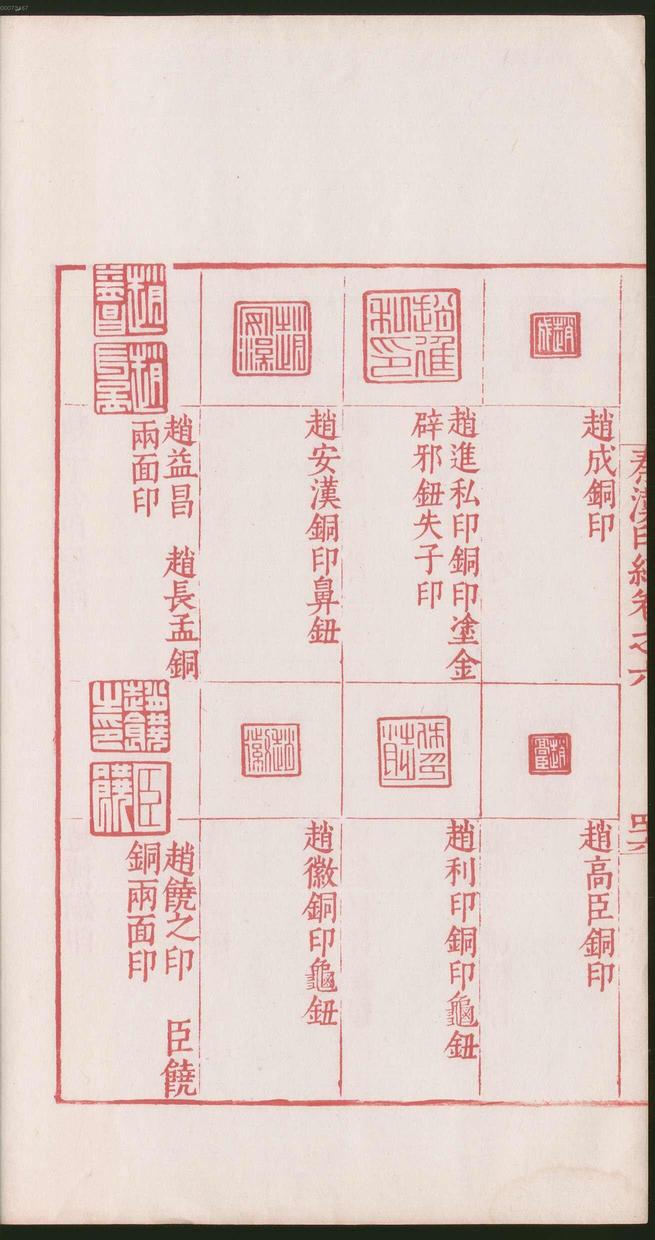 00073467
秦漢印統卷之六
四六
趙成銅印
趙高臣銅印
趙進私印銅印塗金
辟邪鈕失子印
趙利印銅印龜鈕
趙安漢銅印鼻鈕
趙徽銅印龜鈕
趙益昌 趙長孟銅
兩面印
趙饒之印 臣饒
銅兩面印